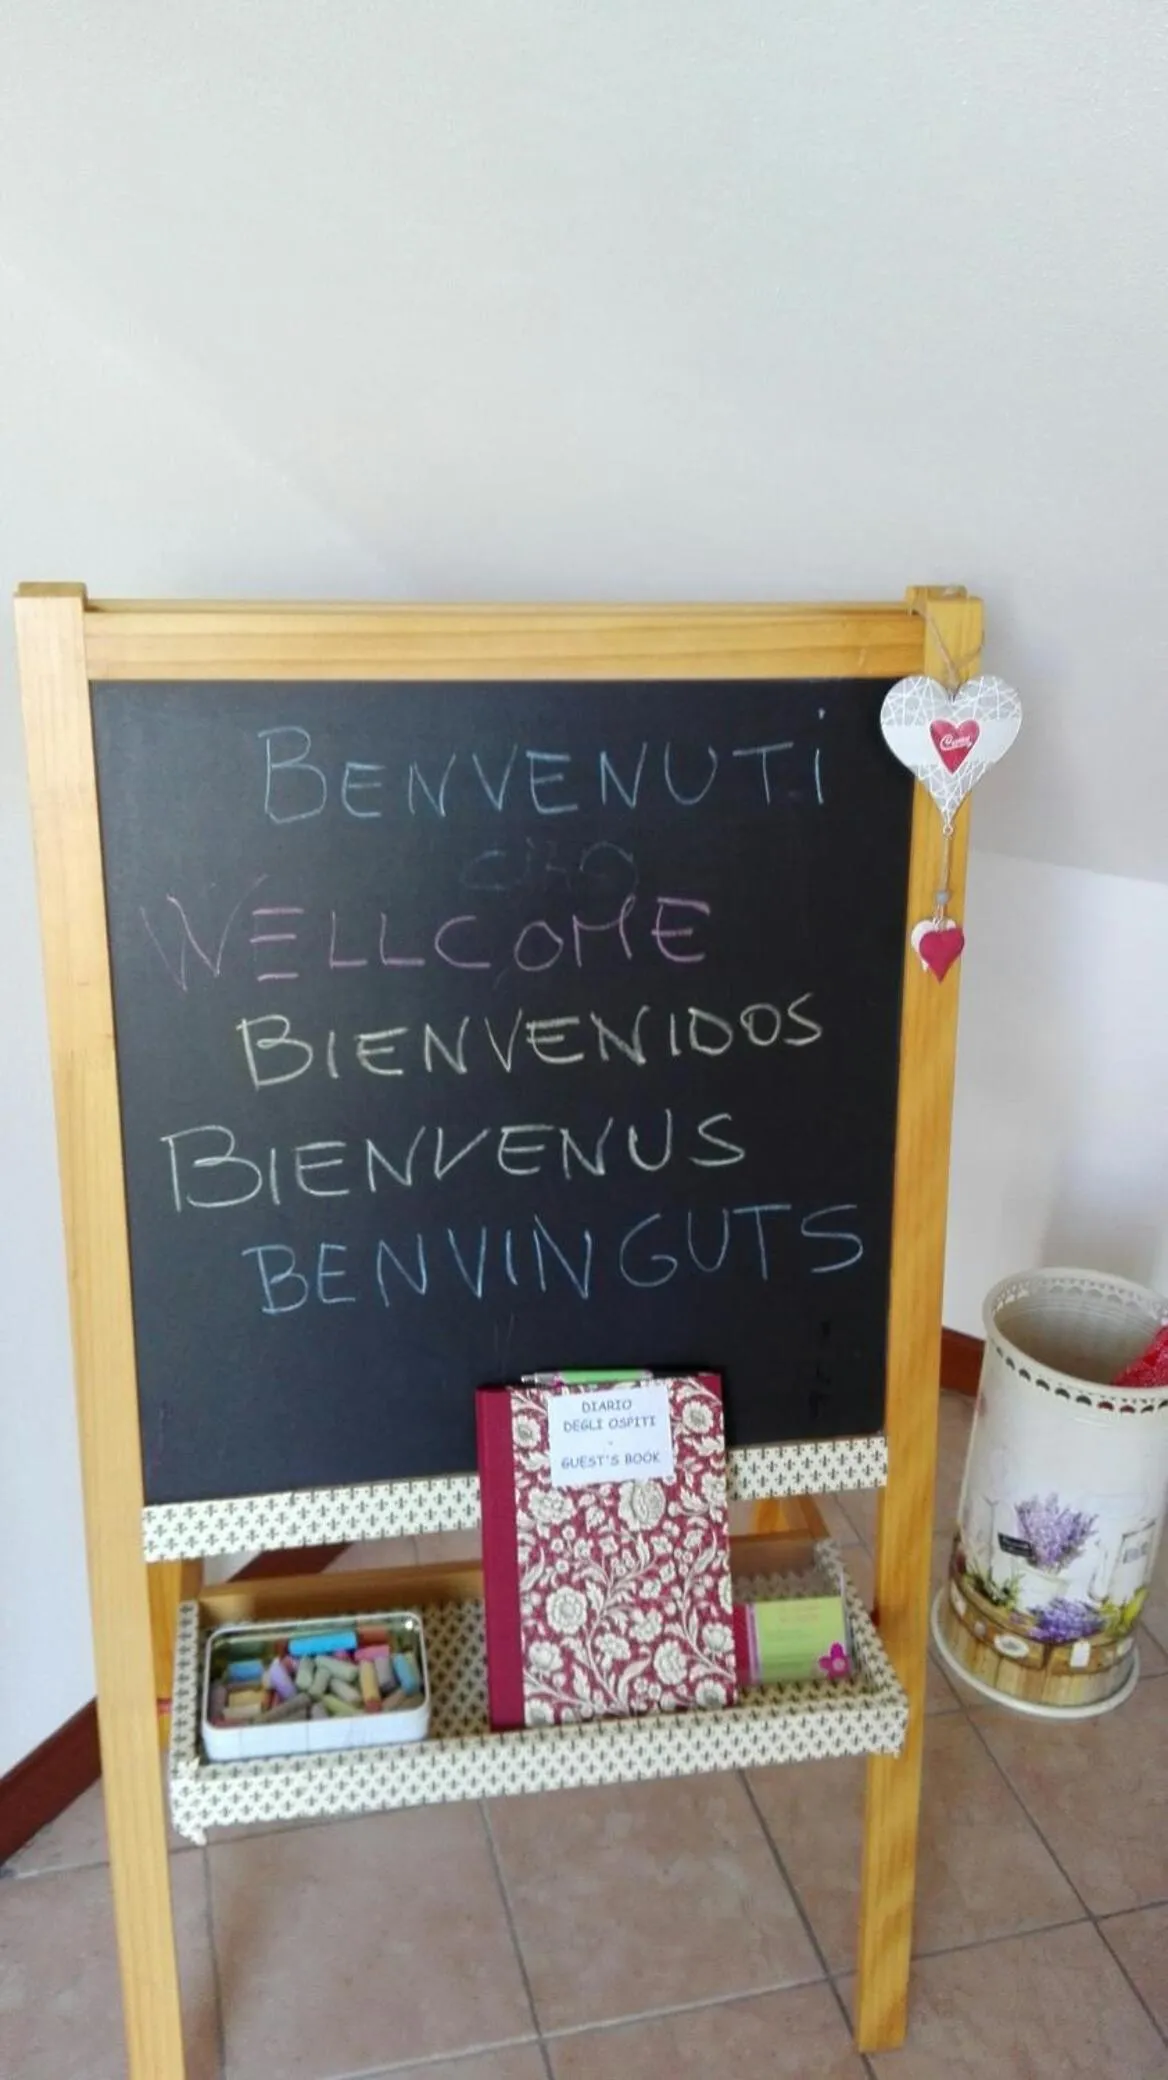 BENVENUTi
WELLCOME
BIENVENIDOS
BIENVENUS
BENVINGUTS
DIARIO
DEGLI OSPITI
-
GUEST'S BOOK